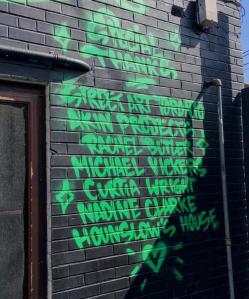 SPECIAL
THANKS
STREET ART TORONTO
AKIN PROJECTS
RACHEL BUTLER
MICHAEL VICKERS
CURTIA WRIGHT
NADINE CLARKE
HOUNSLOWS HOUSE